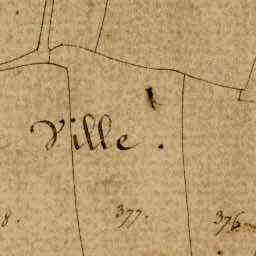 Ville.
8. 377. 376